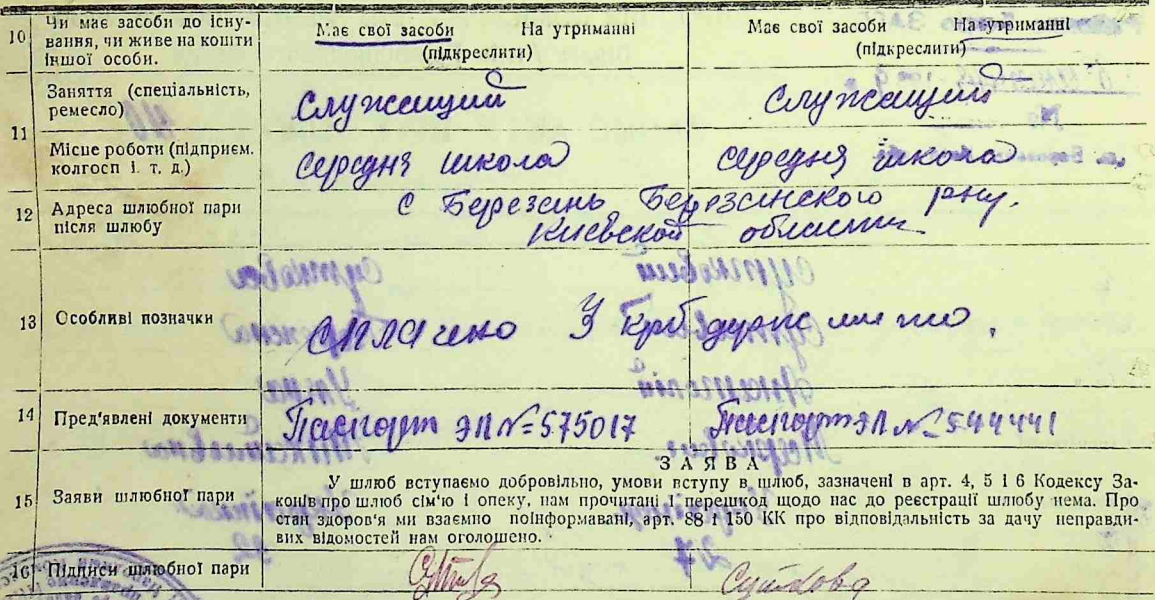 10 Чи має засоби до існування, чи живе на кошти іншої особи.
Має свої засоби На утриманні
(підкреслити)
Має свої засоби На утриманні
(підкреслити)
11 Заняття (спеціальність, ремесло)
служащий
служащий
Місце роботи (підприєм. колгосп і. т. д.)
середня школа
середня школа
12 Адреса шлюбної пари після шлюбу
с Березань Березанского р-ну.
Киевской области
13 Особливі позначки
3 крб
14 Пред'явлені документи
Паспорт ЭЛ №=575017
Паспорт ЭЛ №=544441
15 Заяви шлюбної пари
ЗАЯВА
У шлюб вступаємо добровільно, умови вступу в шлюб, зазначені в арт. 4, 5 і 6 Кодексу За-
конів про шлюб сім'ю і опеку, нам прочитані і перешкод щодо нас до реєстрації шлюбу нема. Про
стан здоров'я ми взаємно поінформавані, арт. 88 і 150 КК про відповідальність за дачу неправди-
вих відомостей нам оголошено.
16 Підписи шлюбної пари